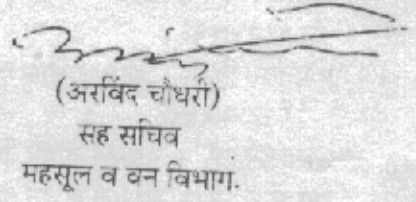 (अरविंद चौधरी)
सह सचिव
महसूल व वन विभाग.